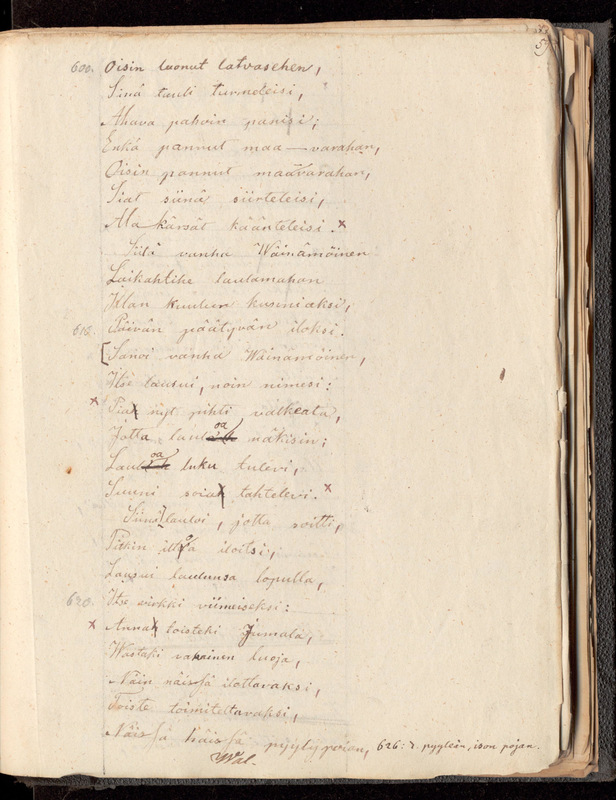 59
600. Oisin luonut latvasehen,
Sinä tuuli turmeleisi,
Ahava pahoin panisi;
Enkä pannut maa—varahan,
Oisin pannut maavarahan,
Siat siinä siirteleisi,
Ala kärsät käänteleisi. x
Siitä vanha Wäinämöinen
Laikahtihe laulamahan
Illan kuulun kunniaksi,
610. Päivän päätyvän iloksi.
[Sanoi vanha Wäinämöinen,
Itse lausui, noin nimesi:
x Piak nyt pihti valkeata,
Jotta lauloa näkisin;
Lauloa luku tulevi,
Suuni soiak tahtelevi. x
Siinä lauloi, jotta soitti,
Pitkin iltoa iloitsi,
Lausui laulunsa lopulla,
620. Itse virkki viimeiseksi:
x Annak toisteki Jumala,
Wastaki vakainen luoja,
Näin näissä ilottavaksi,
Toiste toimiteltavaksi,
Näissä häissä pyylypoian, 626: 7. pyylein, ison pojan.
Wal-